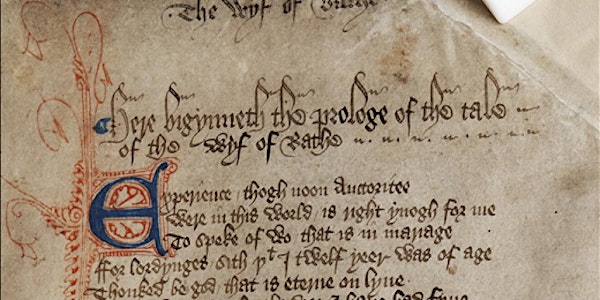 The wyf of Bathe
Here bigynneth the prologe of the tale
of the wyf of Bathe
Experience thogh noon Auctoritee
Were in this world is right ynogh for me
To speke of wo that is in mariage
ffor lordynges sith þt I twelf yeer was of age
Thonked be god that is eterne on lyue